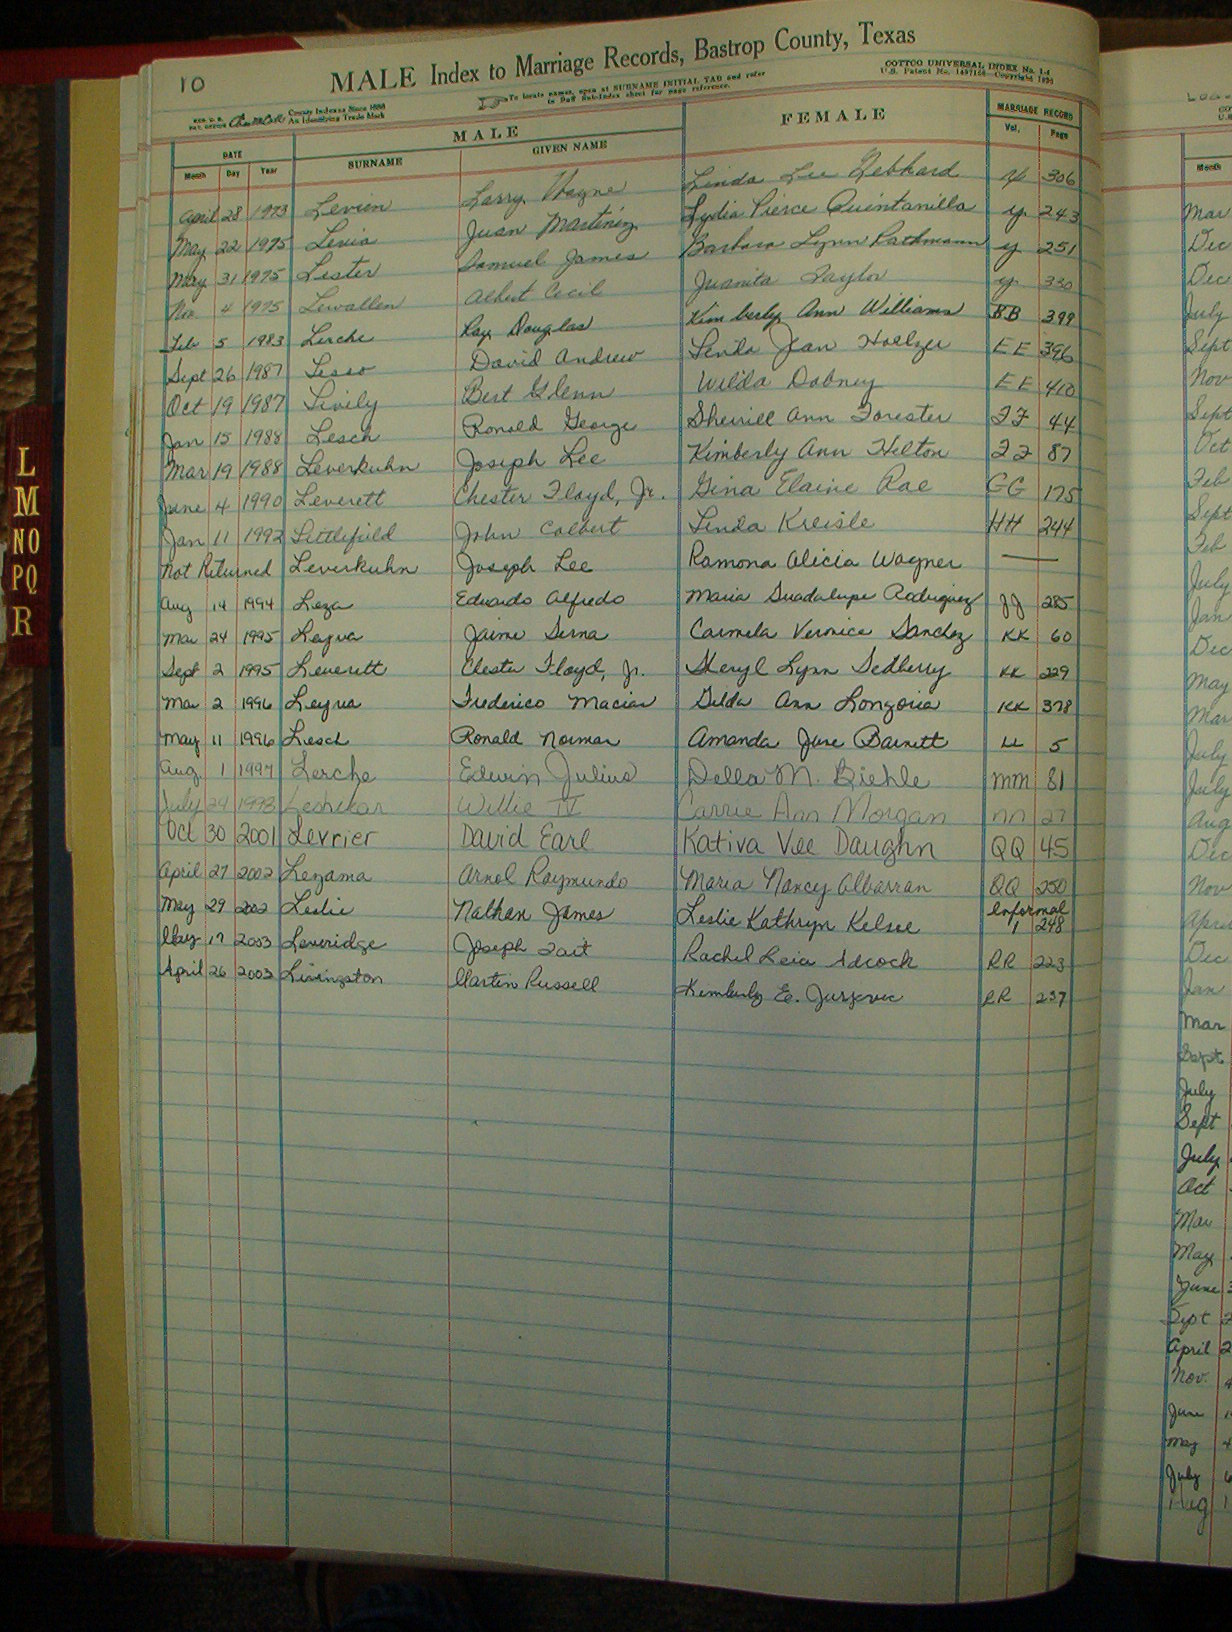 10
MALE Index to Marriage Records, Bastrop County, Texas
COTTCO UNIVERSAL INDEX No. 1-4
U.S. Patent No. Copyright
County Indexes Since 1888
An Identifying Trade Mark
To locate names, open at SURNAME INITIAL TAB and refer
to Buff Sub-Index sheet for page reference.
DATE MALE FEMALE MARRIAGE RECORD
Month Day Year SURNAME GIVEN NAME Vol. Page
April 28 1973 Levien Larry Wayne Linda Lee Nebhard 306
May 22 1975 Levia Juan Martinez Lydia Pierce Quintanilla y 243
May 31 1975 Lester Samuel James Barbara Lynn Rathmann y 251
Nov 4 1975 Lewallen Albert Cecil Juanita Saylor y 330
Feb 5 1983 Lerche Ray Douglas Kimberly Ann Williams BB 399
Sept 26 1987 David Andrew Linda Jean Hoelzer EE 396
Oct 19 1987 Lively Bert Glenn Wilda Dabney EE 410
Jan 15 1988 Lesch Ronald George Sherrill Ann Forester FF 44
Mar 19 1988 Leverkuhn Joseph Lee Kimberly Ann Hilton FF 87
June 4 1990 Leverett Chester Floyd, Jr. Gina Elaine Rae GG 175
Jan 11 1992 Littlefield John Colbert Linda Kreisle HH 244
Not Returned Leverkuhn Joseph Lee Ramona Alicia Wagner —
Aug 14 1994 Leza Eduardo Alfredo Maria Guadalupe Rodriguez JJ 285
Mar 24 1995 Leyva Jaime Serna Carmela Veronica Sanchez KK 60
Sept 2 1995 Leverett Chester Floyd, Jr. Sheryl Lynn Sedberry KK 229
Mar 2 1996 Leyva Frederico Macias Gilda Ann Longoria KK 378
May 11 1996 Lesch Ronald Norman Amanda June Barnett LL 5
Aug 1 1997 Lerche Edwin Julius Della M. Biehle mm 81
July 24 1998 Leshikar Willie IV Carrie Ann Morgan nn 27
Oct 30 2001 Levrier David Earl Kativa Vee Daughn QQ 45
April 27 2002 Lezama Arnol Raymundo Maria Nancy Albarran QQ 250
May 29 2002 Leslie Nathan James Leslie Kathryn Kelsee Informal 1 248
May 17 2003 Leveridge Joseph Tait Rachel Leia Adcock RR 223
April 26 2003 Livingston Martin Russell Kimberly E. RR 237
L
M
NO
PQ
R
Month
Mar
Dec
Dec
July
Sept
Nov
Sept
Oct
Feb
Sept
Feb
July
Jan
Dec
May
Mar
July
July
Aug
Dec
Nov
April
Dec
Jan
Mar
Sept
July
Sept
July
Oct
Mar
May
June
Sept
April 2
Nov.
June
May 4
July 6
Aug 1